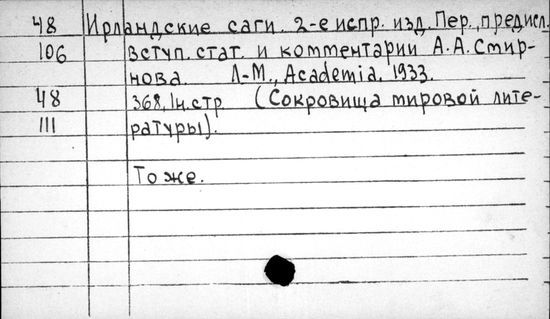 48 Ирландские саги. 2-е испр. изд. Пер., предисл.
106 вступ. стат. и комментарии А.А.Смир-
нова. Л-М., Academia, 1933.
48 368, 1н.стр (Сокровища мировой лите-
111 ратуры).
То же.